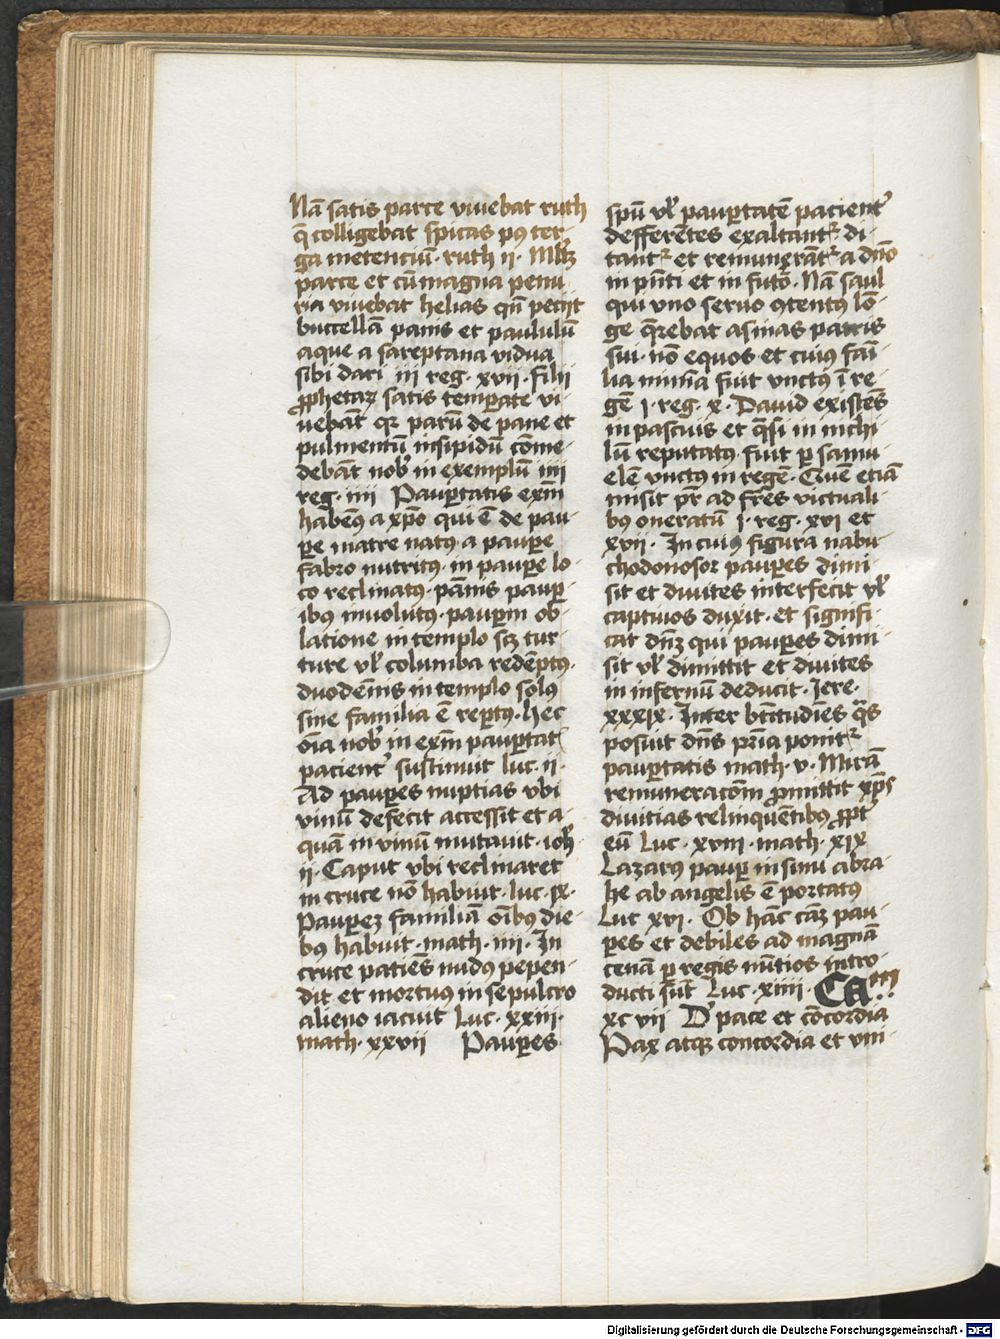 Nā satis parce viuebat ruth
q̄ colligebat spicas pꝰ ter-
ga metenciū· ruth ii· Mltꝫ
parce et cū magna penu
ria viuebat helias qn̄ peciit
buccellā panis et paululū
aque a sareptana vidua
sibi dari iii reg· xvii· filii
ꝓphetaꝝ satis temꝑate vi-
uebāt qꝛ parū de pane et
pulmentū insipidū cōme-
debāt nob̾ in exemplū iiii
reg· iiii Pauꝑtatis exm̄
habēꝰ a xp̄o qui ē de pau-
ꝑe matre natꝰ· a pauꝑe
fabro nutritꝰ· in pauꝑe lo-
co reclinatꝰ· pānis pauꝑ-
ibꝰ inuolutꝰ· pauꝑm ob-
latione in templo scꝫ tur-
ture vl̾ columba redēptꝰ·
duodēnis in templo solꝰ
sine familia ē reꝑtꝰ· hec
oīa nob̾ in exm̄ pauꝑtat
pacient̾ sustinuit luc· ii·
Ad pauꝑes nuptias vbi
vinū defecit accessit et a-
quā in vinū mutauit· ioh̄
ii· Caput vbi reclinaret
in cruce nō habuit· luc· ix·
Pauꝑeꝫ familiā oībꝰ die-
bꝰ habuit· math· iiii· In
cruce patiēs nudꝰ pepen-
dit et mortuꝰ in sepulcro
alieno iacuit Luc· xxiii·
math· xxvii Pauꝑes
spū vl̾ pauꝑtatē pacient̾
defferētes exaltant᷑· di-
tant᷑ et remunerāt᷑ a dn̄o
in pn̄ti et in futō· Nā saul
qui vno seruo ꝯtentꝰ lō-
ge q̄rebat asinas patris
sui· nō equos· et cuius fāi-
lia minīa fuit vnctꝰ ī re-
gē j· reg· x· Dauid existēs
in pascuis et qͣsi in nichi
lū reputatꝰ· fuit ꝑ samu
elē vnctꝰ in regē· Quē etiā
misit pr̄ ad fr̄es victuali-
bꝰ oneratū j· reg· xvi et
xvii· In cuiꝰ figura nabu-
chodonosor pauꝑes dimi-
sit et diuites interfecit vl̾
captiuos duxit· et signifi-
cat dn̄ꝫ qui pauꝑes dimi-
sit vl̾ dimittit et diuites
in infernū deducit· Jere·
xxxix· Inter bt̄itudīes qͣs
posuit dn̄s pr̄ia ponit᷑
pauꝑtatis math· v· Mirā
remuneracōm ꝓmittit xp̄s
diuitias relinquētibꝰ ꝓpt
eū Luc· xviii· math· xix
Lazarꝰ pauꝑ in sinu abra
he ab angelis ē portatꝰ
Luc xvi· Ob hāc cāꝫ pau-
ꝑes et debiles ad magnā
cenā ꝑ regis nūtios intro-
ducti sūt Luc· xiiii· Ca
xcvii D̾ pace et cōcordia
Pax atqꝫ concordia et vni
Digitalisierung gefördert durch die Deutsche Forschungsgemeinschaft - DFG